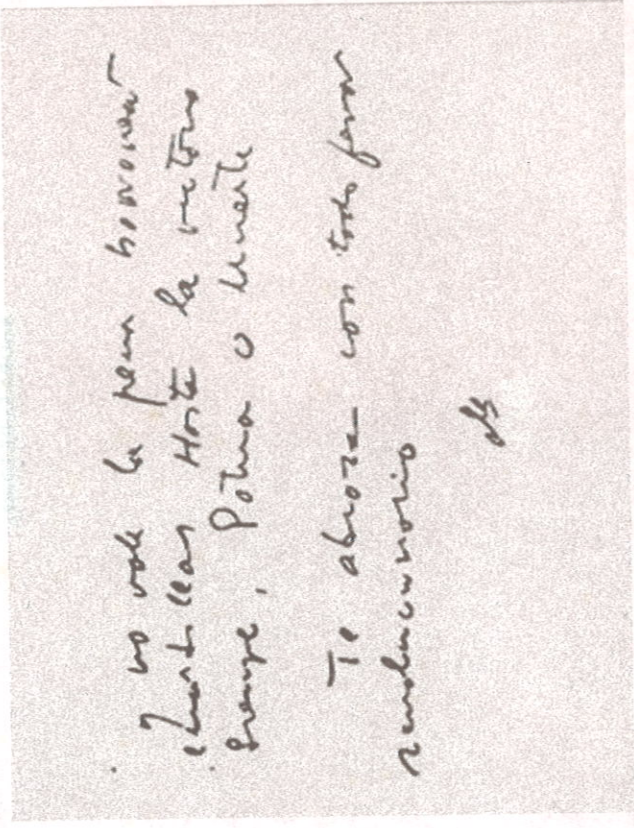 no vale la pena borronear
cuartillas Hasta la victoria
siempre, Patria o Muerte
Te abraza con todo fervor
revolucionario